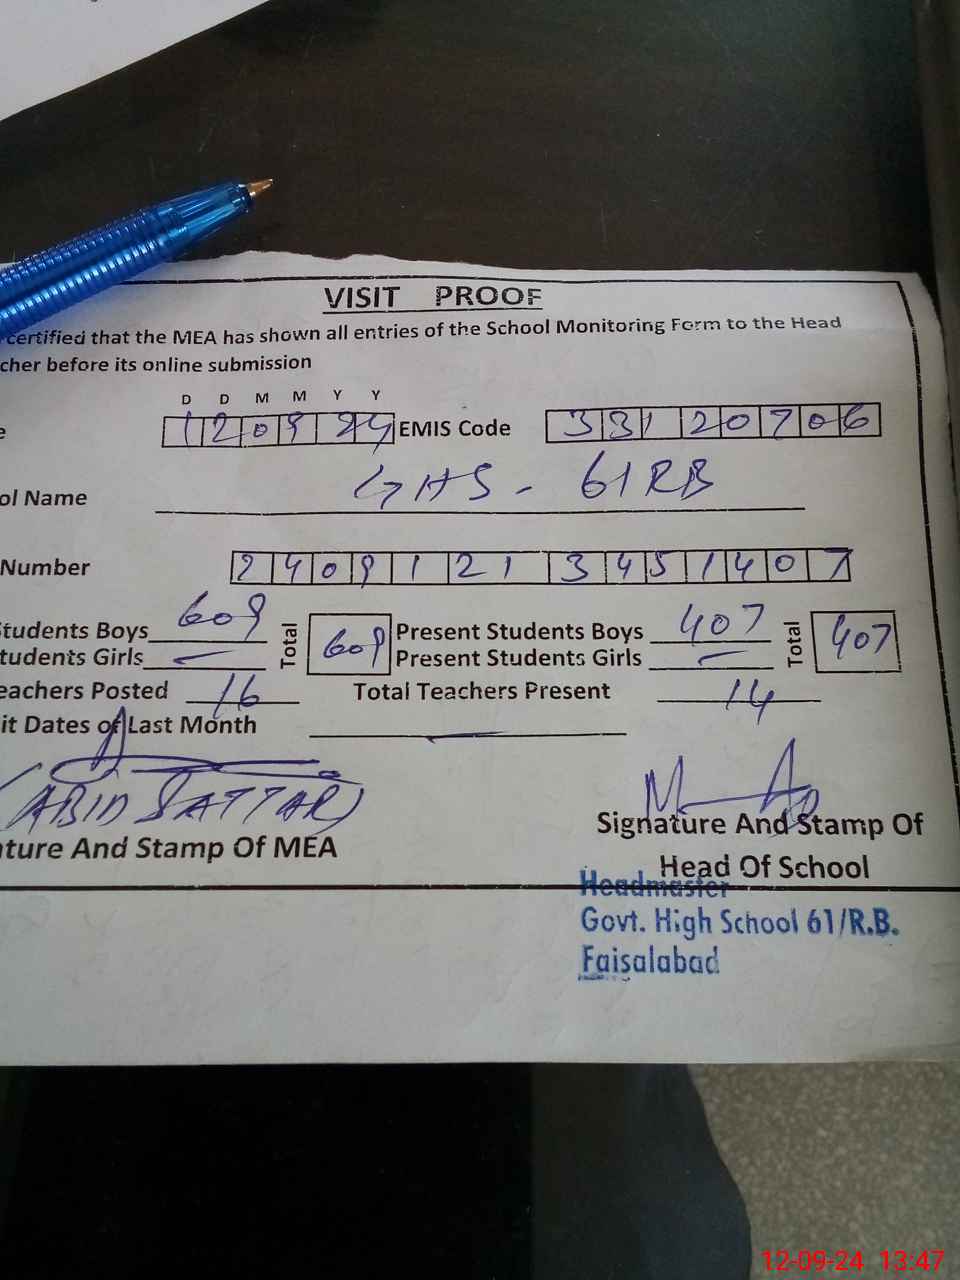 VISIT PROOF
certified that the MEA has shown all entries of the School Monitoring Form to the Head
cher before its online submission
D D M M Y Y
e 120924 EMIS Code 33120706
ol Name GHS - 61RB
Number 24091213451407
Students Boys 609 Total 609 Present Students Boys 407 Total 407
tudents Girls — Present Students Girls —
eachers Posted 16 Total Teachers Present 14
it Dates of Last Month —
(ABID SATTAR)
ture And Stamp Of MEA
Signature And Stamp Of
Head Of School
Headmaster
Govt. High School 61/R.B.
Faisalabad
12-09-24 13:47